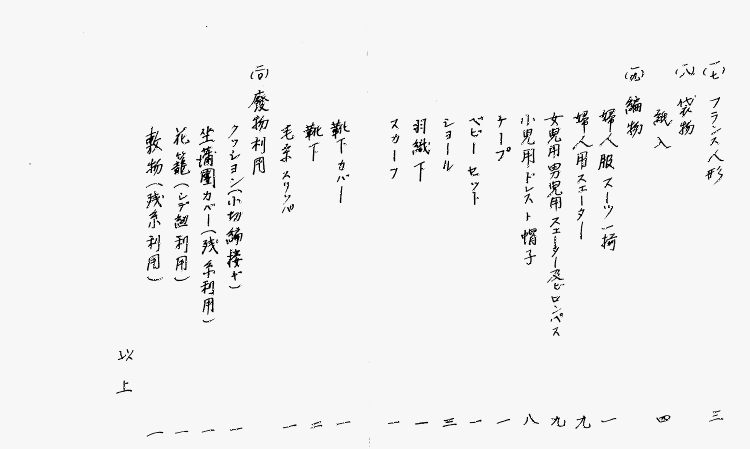 (一七) フランス人形 三
(一八) 袋物
紙入 四
(一九) 編物
婦人服スーツ一揃 一
婦人用スエーター 九
女児用男児用スエーター及ビロンパス 九
小児用ドレスト帽子 八
ケープ 一
ベビーセット 一
ショール 三
羽織下 一
スカーフ 一
靴下カバー 一
靴下 二
毛糸スリッパ 一
(二〇) 廢物利用
クッション(小切編接ギ) 一
坐蒲團カバー(残糸利用) 一
花籠(シデ紐利用) 一
敷物(残糸利用) 一
以上